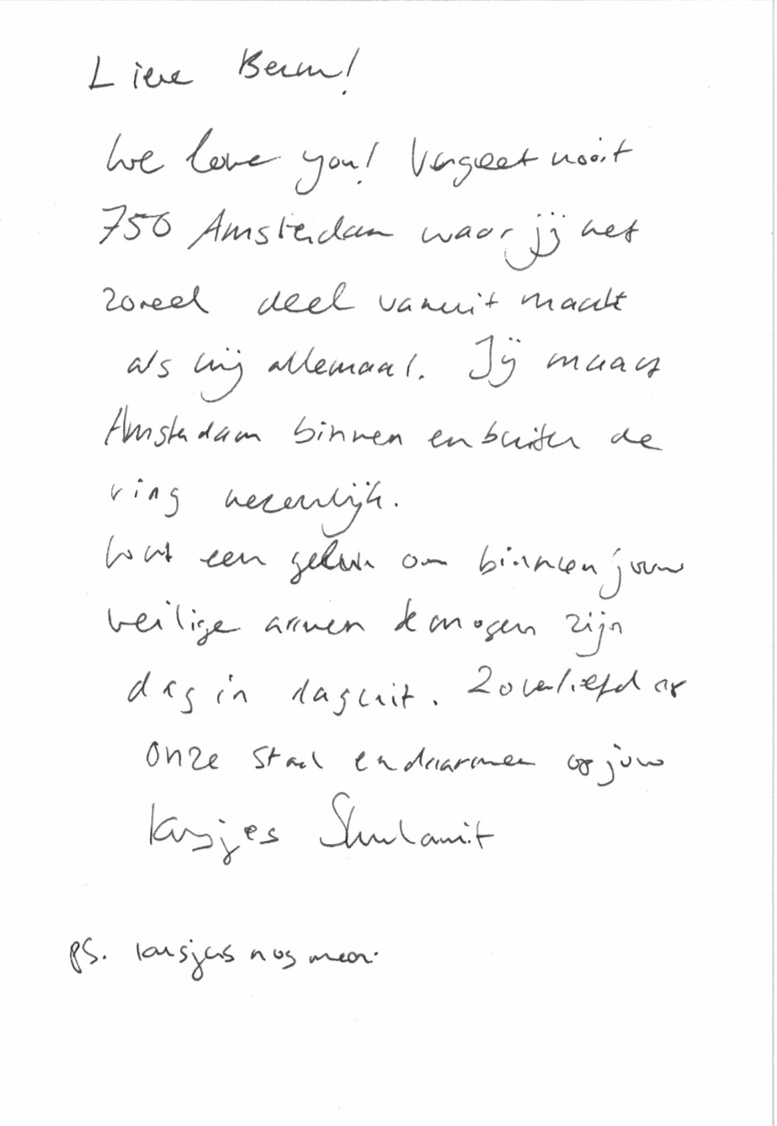 Lieve Beau!
We love you! Vergeet nooit
750 Amsterdam waar jij net
zoveel deel vanuit maakt
als wij allemaal. Jij maakt
Amsterdam binnen en buiten de
ring wezenlijk.
Wat een geluk om binnen jouw
veilige armen te mogen zijn
dag in dag uit. Zo verliefd op
onze stad en daarmee op jouw
kusjes Shulamit
ps. kusjes nog meer.